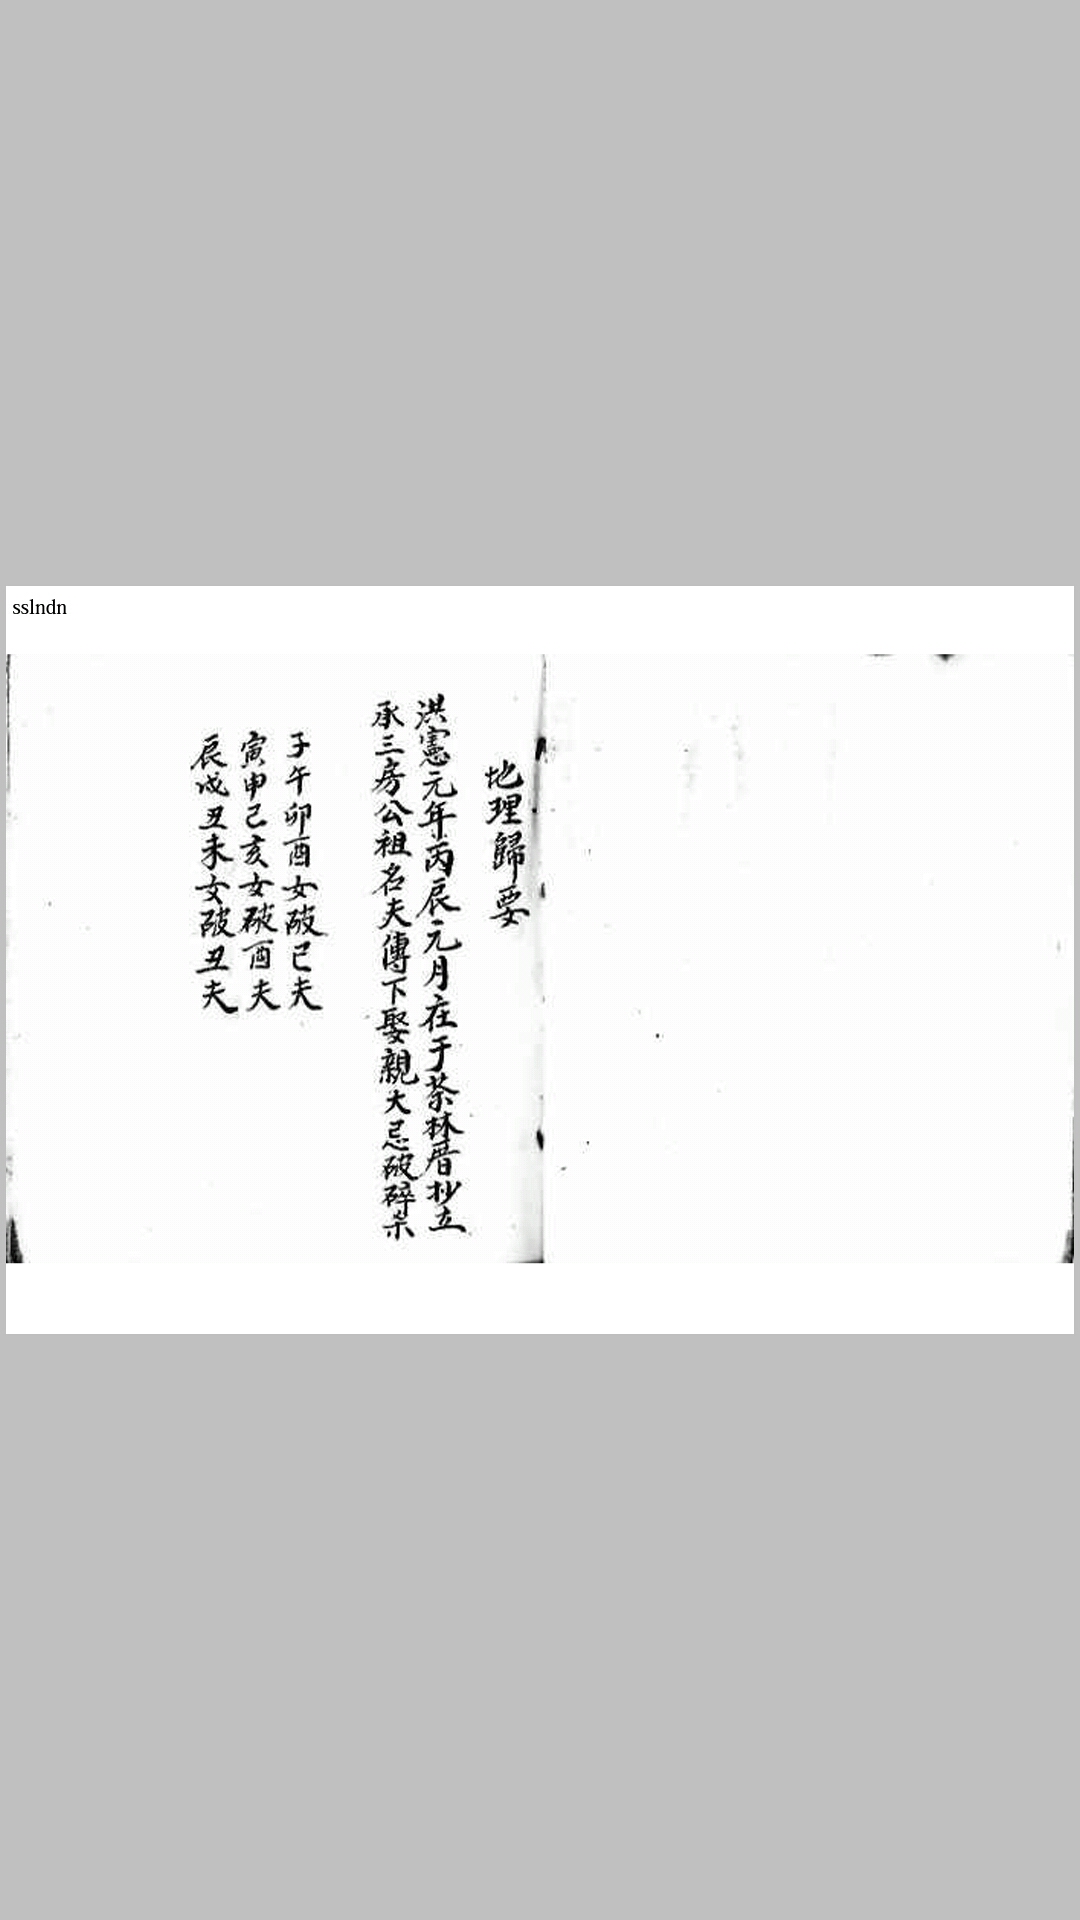 sslndn
地理歸要
洪憲元年丙辰元月在于茶林厝抄立
承三房公祖名夫傳下娶親大忌破碎杀
子午卯酉女破已夫
寅申己亥女破酉夫
辰戍丑未女破丑夫